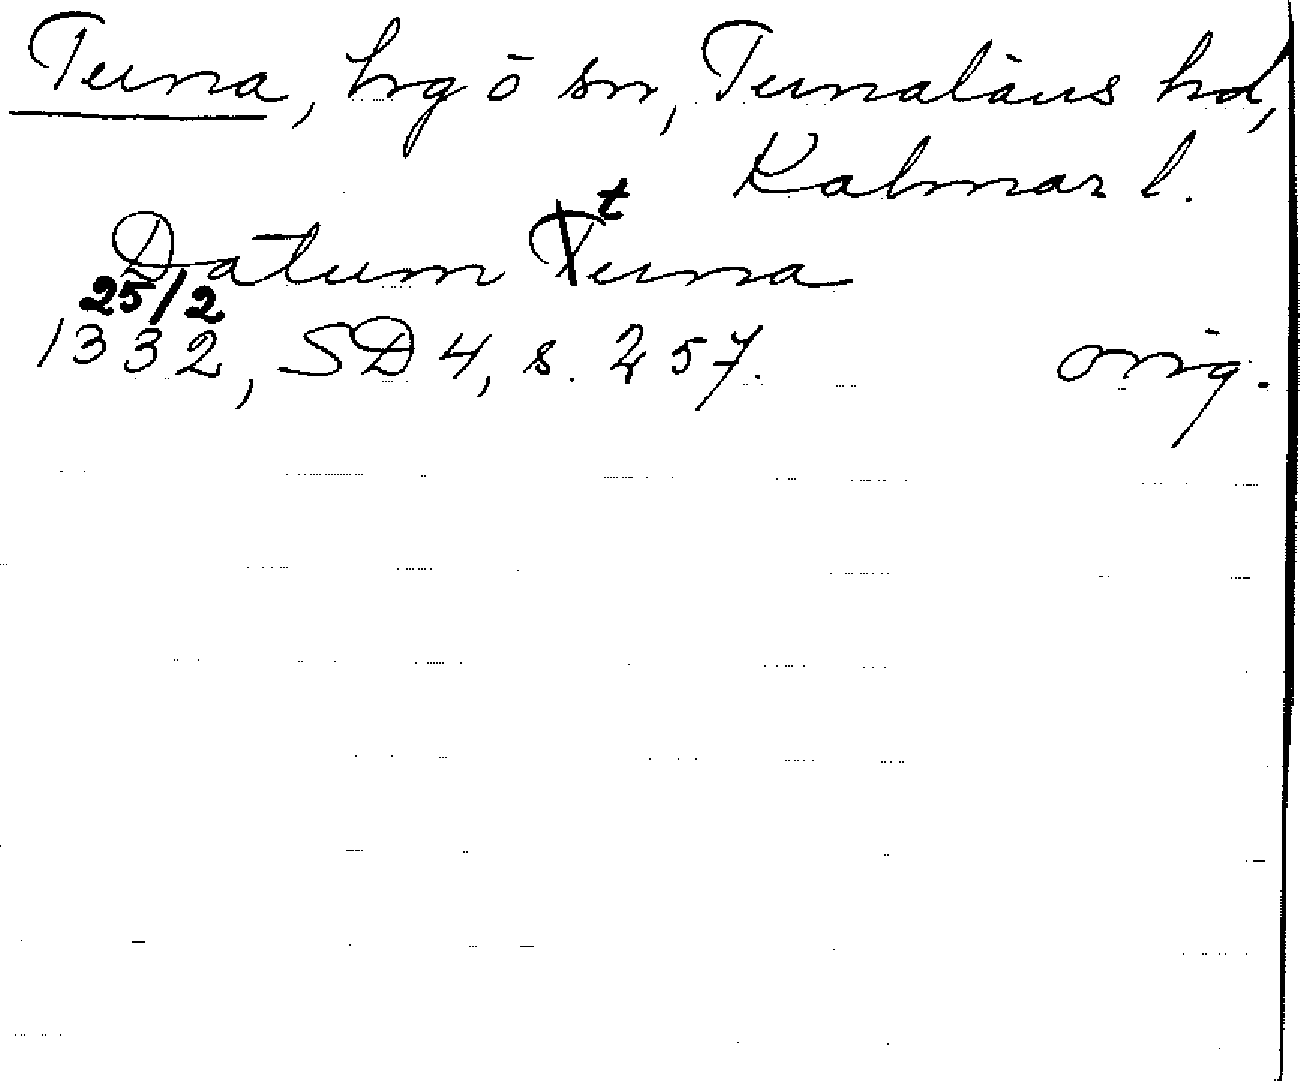 Tuna, hrg ō sn, Tunaläns hd,
Kalmar l.
Datum tuna
25/2
1332, SD 4, s. 257. orig.